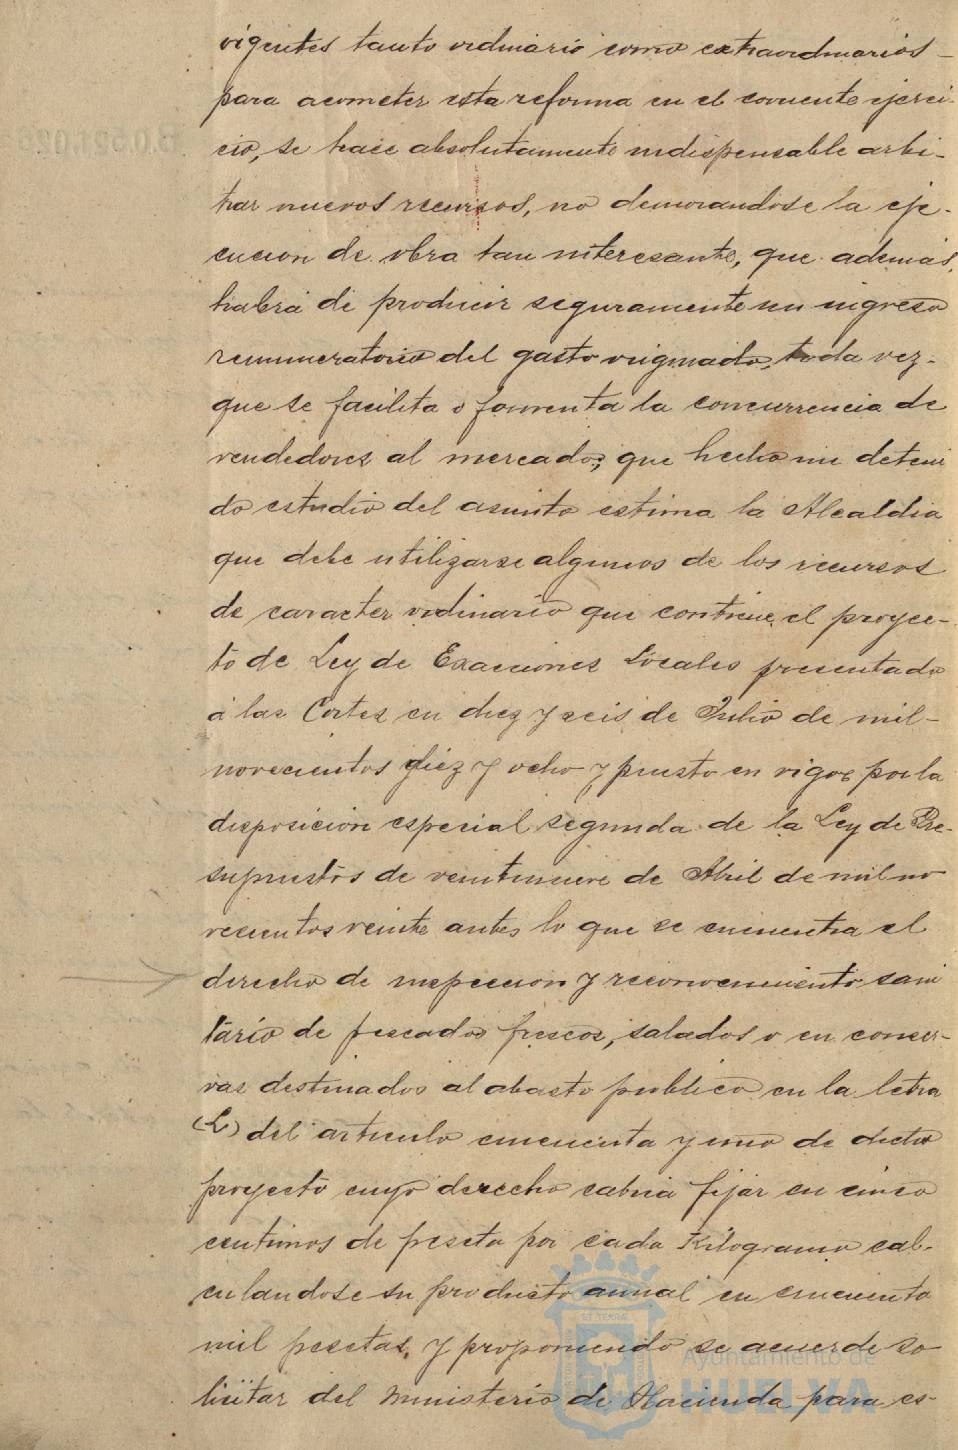 vigentes tanto ordinario como extraordinarios -
para acometer esta reforma en el corriente ejerci-
cio, se hace absolutamente indispensable arbi-
trar nuevos recursos, no demorandose la eje-
cucion de obra tan interesante, que además,
habrá de producir seguramente un ingreso
remuneratorio del gasto originado, toda vez-
que se facilita o fomenta la concurrencia de
vendedores al mercado; que hecho un deteni
do estudio del asunto estima la Alcaldia
que debe utilizarse algunos de los recursos
de caracter ordinario que contiene el proyec-
to de Ley de Exacciones Locales presentado
á las Cortes en diez y seis de Julio de mil-
novecientos diez y ocho y puesto en vigor por la
disposición especial segunda de la Ley de Pre-
supuestos de veintinueve de Abril de mil no
vecientos veinte antes lo que se encuentra el
derecho de inspeccion y reconocimiento sani
tario de pescados frescos, salados o en conser-
vas destinados al abasto publico en la letra
(L) del articulo cincuenta y uno de dicho
proyecto cuyo derecho cabria fijar en cinco
centimos de peseta por cada Kilogramo cal-
culandose su producto anual en cincuenta
mil pesetas, y proponiendo se acuerde so
licitar del Ministerio de Hacienda para es-
Ayuntamiento de
HUELVA